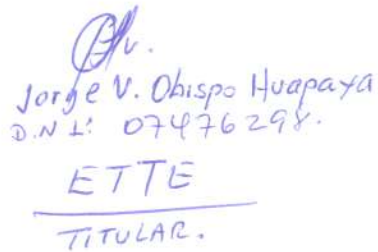 Jorge V. Obispo Huapaya
D.N I: 07476298.
ETTE
TITULAR.